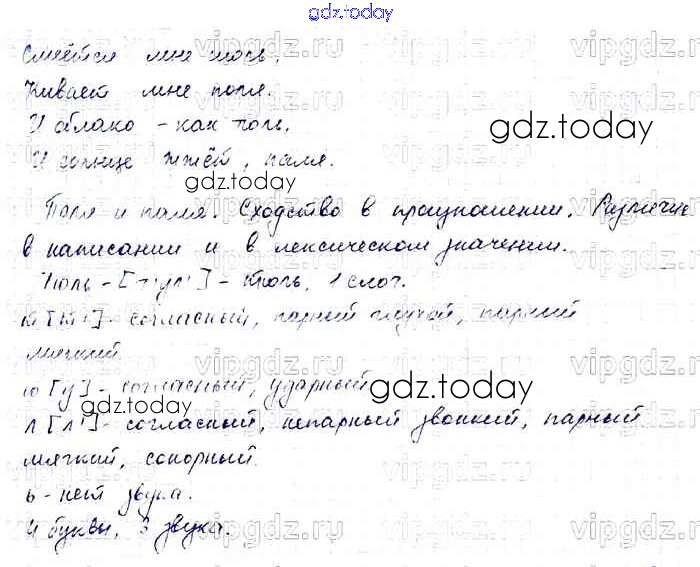 gdz.today
Смеётся мне июль,
Кивает мне поля.
И облако - как тюль,
И солнце жжёт, паля.
Поля и паля. Сходство в произношении. Различие
в написании и в лексическом значении.
Тюль - [т'ул'] - тюль, 1 слог.
т [т'] - согласный, парный глухой, парный
мягкий
ю [у] - согласный, ударный
л [л'] - согласный, непарный звонкий, парный
мягкий, сонорный.
ь - нет звука.
4 буквы, 3 звука.
gdz.today
gdz.today
gdz.today
gdz.today
vipgdz.ru